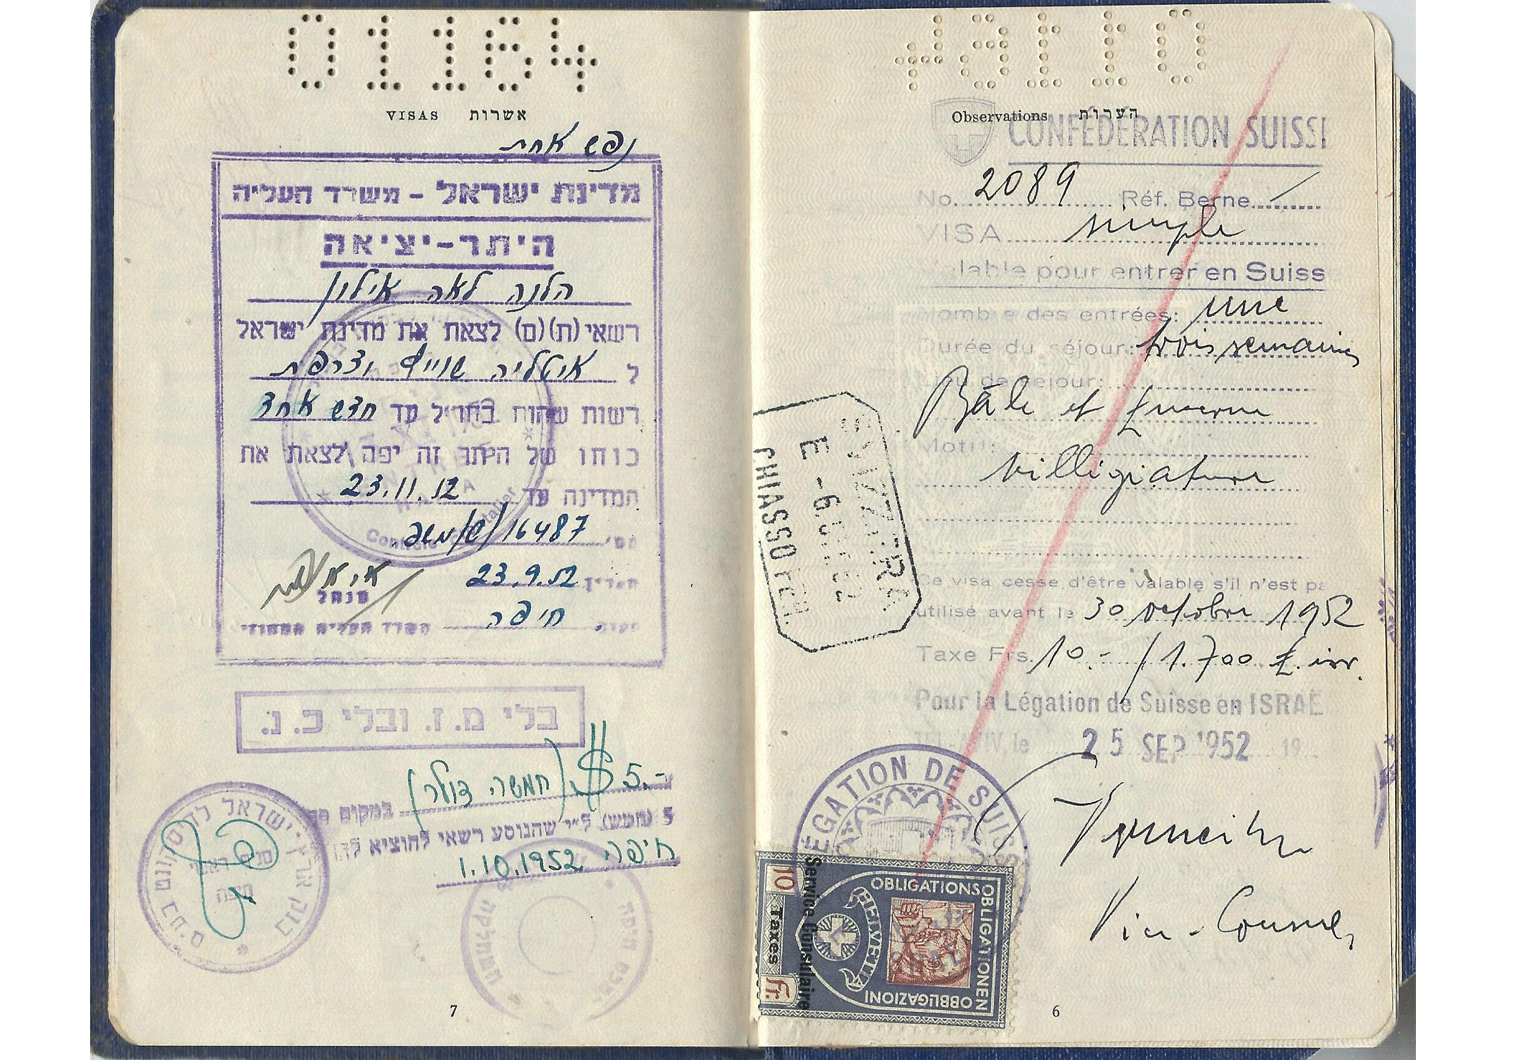 01164
VISAS אשרות
נפש אחת
מדינת ישראל – משרד העליה
היתר-יציאה
הלנה לאה אילון
רשאי(ת)(ם) לצאת את מדינת ישראל
ל איטליה שוויץ וצרפת
רשות שהות בחו״ל עד חדש אחד
כוחו של היתר זה יפה לצאת את
המדינה עד 23.11.52
מס׳ 16487
תאריך 23.9.52
מנהל
חיפה
משרד העליה המחוזי
בלי מ.ז. ובלי כ.נ.
$ 5.- (חמשה דולר)
במקום
5 (חמש) ל״י שהנוסע רשאי להוציא
חיפה 1.10.1952
7
01164
Observations הערות
CONFÉDÉRATION SUISSE
No. 2089 Réf. Berne
VISA simple
valable pour entrer en Suisse
Nombre des entrées: une
Durée du séjour: trois semaines
Lieu de séjour:
Bâle et Lucerne
Motif:
villégiature
Ce visa cesse d'être valable s'il n'est pa
utilisé avant le 30 octobre 1952
Taxe Frs. 10.- / 1.700 £. isr.
Pour la Légation de Suisse en ISRAE
TEL-AVIV, le 25 SEP 1952 19
Vice-Consul
LÉGATION DE SUISSE
SVIZZERA
E
CHIASSO
OBLIGATIONS
OBLIGATIONEN
OBBLIGAZIONI
HELVETIA
Service Consulaire
10 Taxes Fr.
6